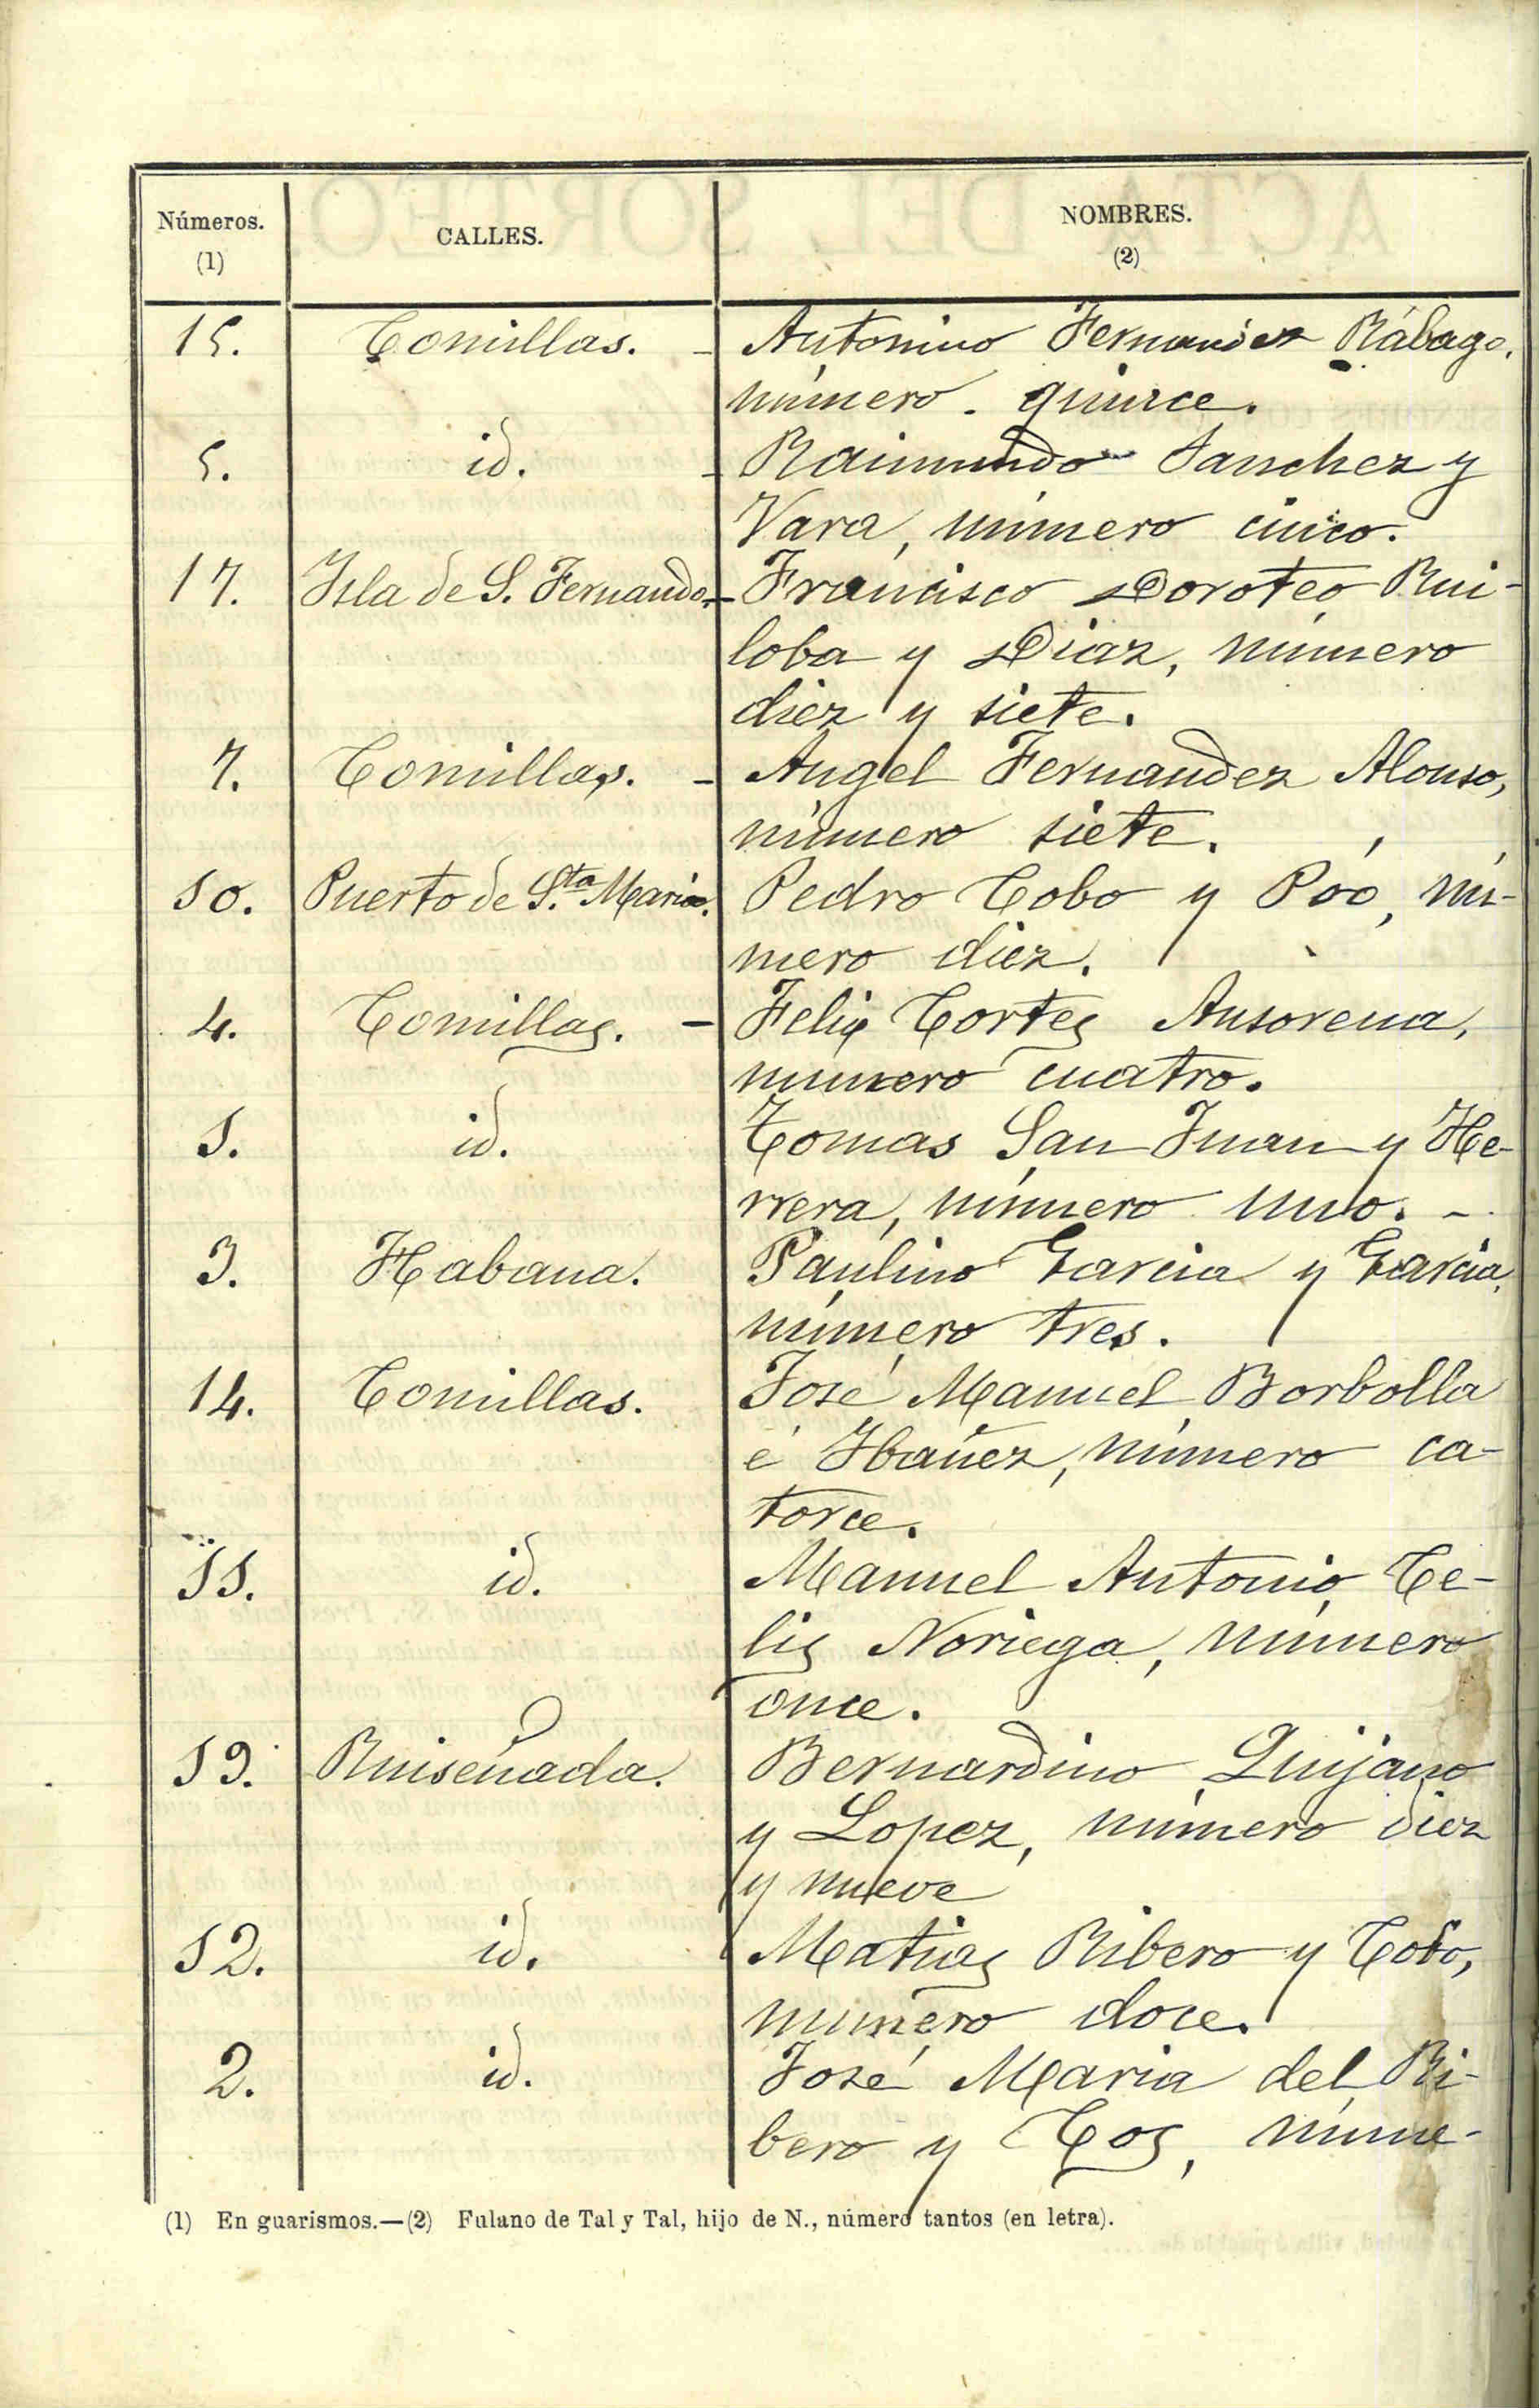 Números.
(1)
CALLES.
NOMBRES.
(2)
15. Comillas. - Antonino Fernandez Rábago,
número. quince.
5. id. - Raimundo Sanchez y
Vara, número cinco.
17. Isla de S. Fernando. - Francisco Doroteo Rui-
loba y Diaz, número
diez y siete.
7. Comillas. - Angel Fernandez Alonso,
número siete.
10. Puerto de S.ta Maria. Pedro Cobo y Póo, nú-
mero diez.
4. Comillas. - Felix Cortes Ansorena,
numero cuatro.
1. id. Tomas San Juan y He-
rrera, número uno. -
3. Habana. Paulino Garcia y Garcia,
número tres.
14. Comillas. José Manuel Borbolla
é Ibañez, número ca-
torce.
11. id. Manuel Antonio Ce-
lis Noriega, número
once.
19. Ruiseñada. Bernardino Quijano
y Lopez, número diez
y nueve
12. id. Matias Ribero y Cobo,
numero doce.
2. id. José Maria del Ri-
bero y Cos, núme-
(1) En guarismos.—(2) Fulano de Tal y Tal, hijo de N., número tantos (en letra).